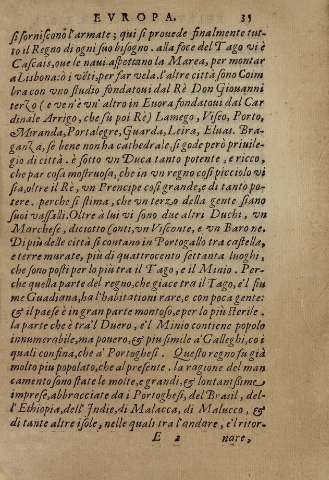 EVROPA. 35
si forniscono l'armate; qui si prouede finalmente tut-
to il Regno di ogni suo bisogno. alla foce del Tago vi è
Cascais, oue le naui aspettano la Marea, per montar
a Lisbona: ò i vẽti, per far vela. l'altre città sono Coim
bra con vno studio fondatoui dal Rè Don Giouanni
terzo (e ven'è vn' altro in Euora fondatoui dal Car
dinale Arrigo, che su poi Rè) Lamego, Viseo, Porto,
Miranda, Portalegre, Guarda, Leira, Eluas. Bra-
ganza, se bene non ha cathedrale, si gode però priuile-
gio di città. è sotto vn Duca tanto potente, e ricco,
che par cosa mostruosa, che in vn regno cosi picciolo vi
sia, oltre il Rè, vn Prencipe cosi grande, e di tanto po-
tere. perche si stima, che vn terzo della gente siano
suoi vassalli. Oltre à lui vi sono due altri Duchi, vn
Marchese, diciotto Conti, vn Visconte, e vn Barone.
Di più delle città si contano in Portogallo tra castella,
e terre murate, più di quattrocento settanta luoghi,
che sono posti per lo più tra il Tago, e il Minio. Per-
che quella parte del regno, che giace tra il Tago, e'l fiu
me Guadiana, ha l'habitationi rare, e con poca gente:
& il paese è in gran parte montoso, e per lo più sterile.
la parte che è tra'l Duero, e'l Minio contiene popolo
innumerabile, ma pouero, & più simile a' Galleghi, co i
quali confina, che a' Portoghesi. Questo regno fu già
molto piu popolato, che al presente. la ragione del man
camento sono state le molte, e grandi, & lontanissime
imprese, abbracciate da i Portoghesi, del Brasil, del-
l'Ethiopia, dell' Indie, di Malacca, di Malucco, &
di tante altre isole, nelle quali tra l'andare, e'l ritor-
E 2 nare,